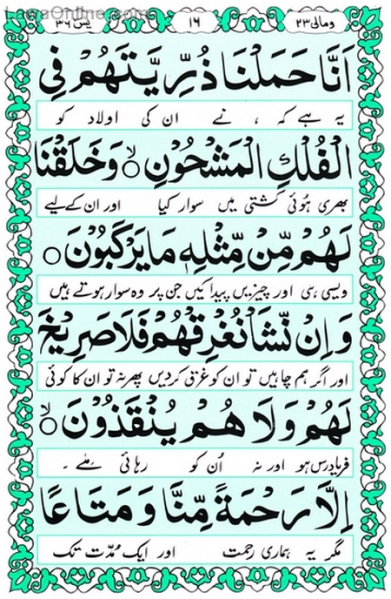 LearnOnline.com
ومالی ۲۳ ۱۶ یٰسٓ ۳۶
اَنَّا حَمَلْنَا ذُرِّیَّتَهُمْ فِی
یہ ہے کہ ، نے ان کی اولاد کو
الْفُلْكِ الْمَشْحُوْنِ ۙ وَ خَلَقْنَا
بھری ہوئی کشتی میں سوار کیا اور ان کے لیے
لَهُمْ مِّنْ مِّثْلِهٖ مَا یَرْكَبُوْنَ ○
ویسی ہی اور چیزیں پیدا کیں جن پر وہ سوار ہوتے ہیں
وَ اِنْ نَّشَاْ نُغْرِقْهُمْ فَلَا صَرِیْخَ
اور اگر ہم چاہیں تو ان کو غرق کر دیں پھر نہ تو ان کا کوئی
لَهُمْ وَ لَا هُمْ یُنْقَذُوْنَ ۙ
فریاد رس ہو اور نہ اُن کو رہائی ملے ۔
اِلَّا رَحْمَةً مِّنَّا وَ مَتَاعًا
مگر یہ ہماری رحمت اور ایک مدّت تک